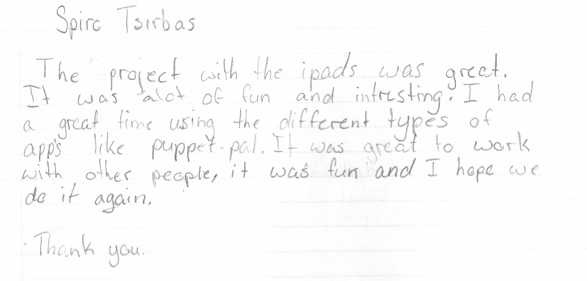 Spiro Tsirbas
The project with the ipads was great.
It was alot of fun and intristing. I had
a great time using the different types of
apps like puppet-pal. It was great to work
with other people, it was fun and I hope we
do it again.
Thank you.